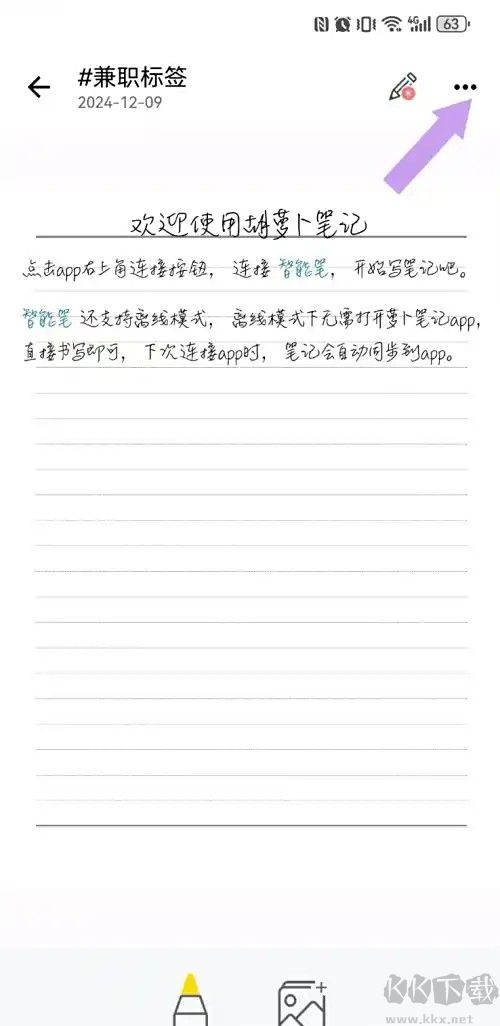 4G 63
#兼职标签
2024-12-09
欢迎使用胡萝卜笔记
点击app右上角连接按钮，连接 智能笔，开始写笔记吧。
智能笔 还支持离线模式，离线模式下无需打开萝卜笔记app，
直接书写即可，下次连接app时，笔记会自动同步到app。
KK下载
www.kkx.net